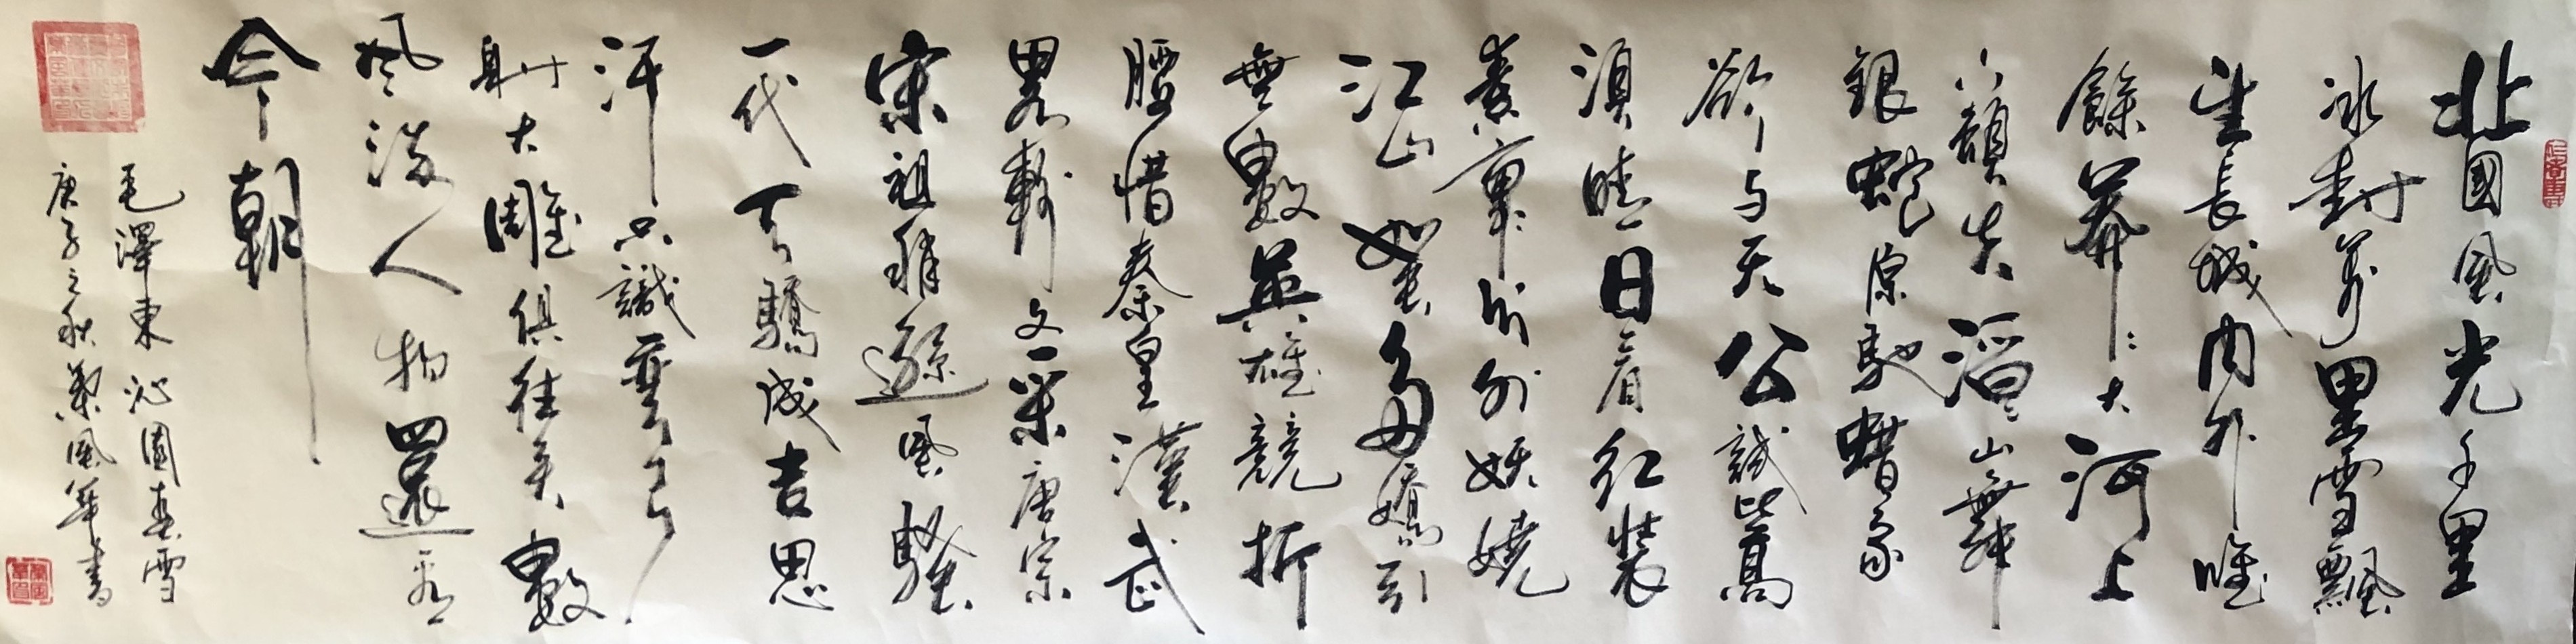 北國風光千里
冰封萬里雪飄
望長城内外唯
餘莽〻大河上
下頓失滔〻山舞
銀蛇原馳蠟象
欲与天公試比高
須晴日看紅裝
素裹分外妖嬈
江山如此多嬌引
無數英雄競折
腰惜秦皇漢武
畧輸文采唐宗
宋祖稍遜風騷
一代天驕成吉思
汗只識彎弓
射大雕俱往矣數
風流人物還看
今朝
毛澤東沁園春雪
庚子之秋 風華書